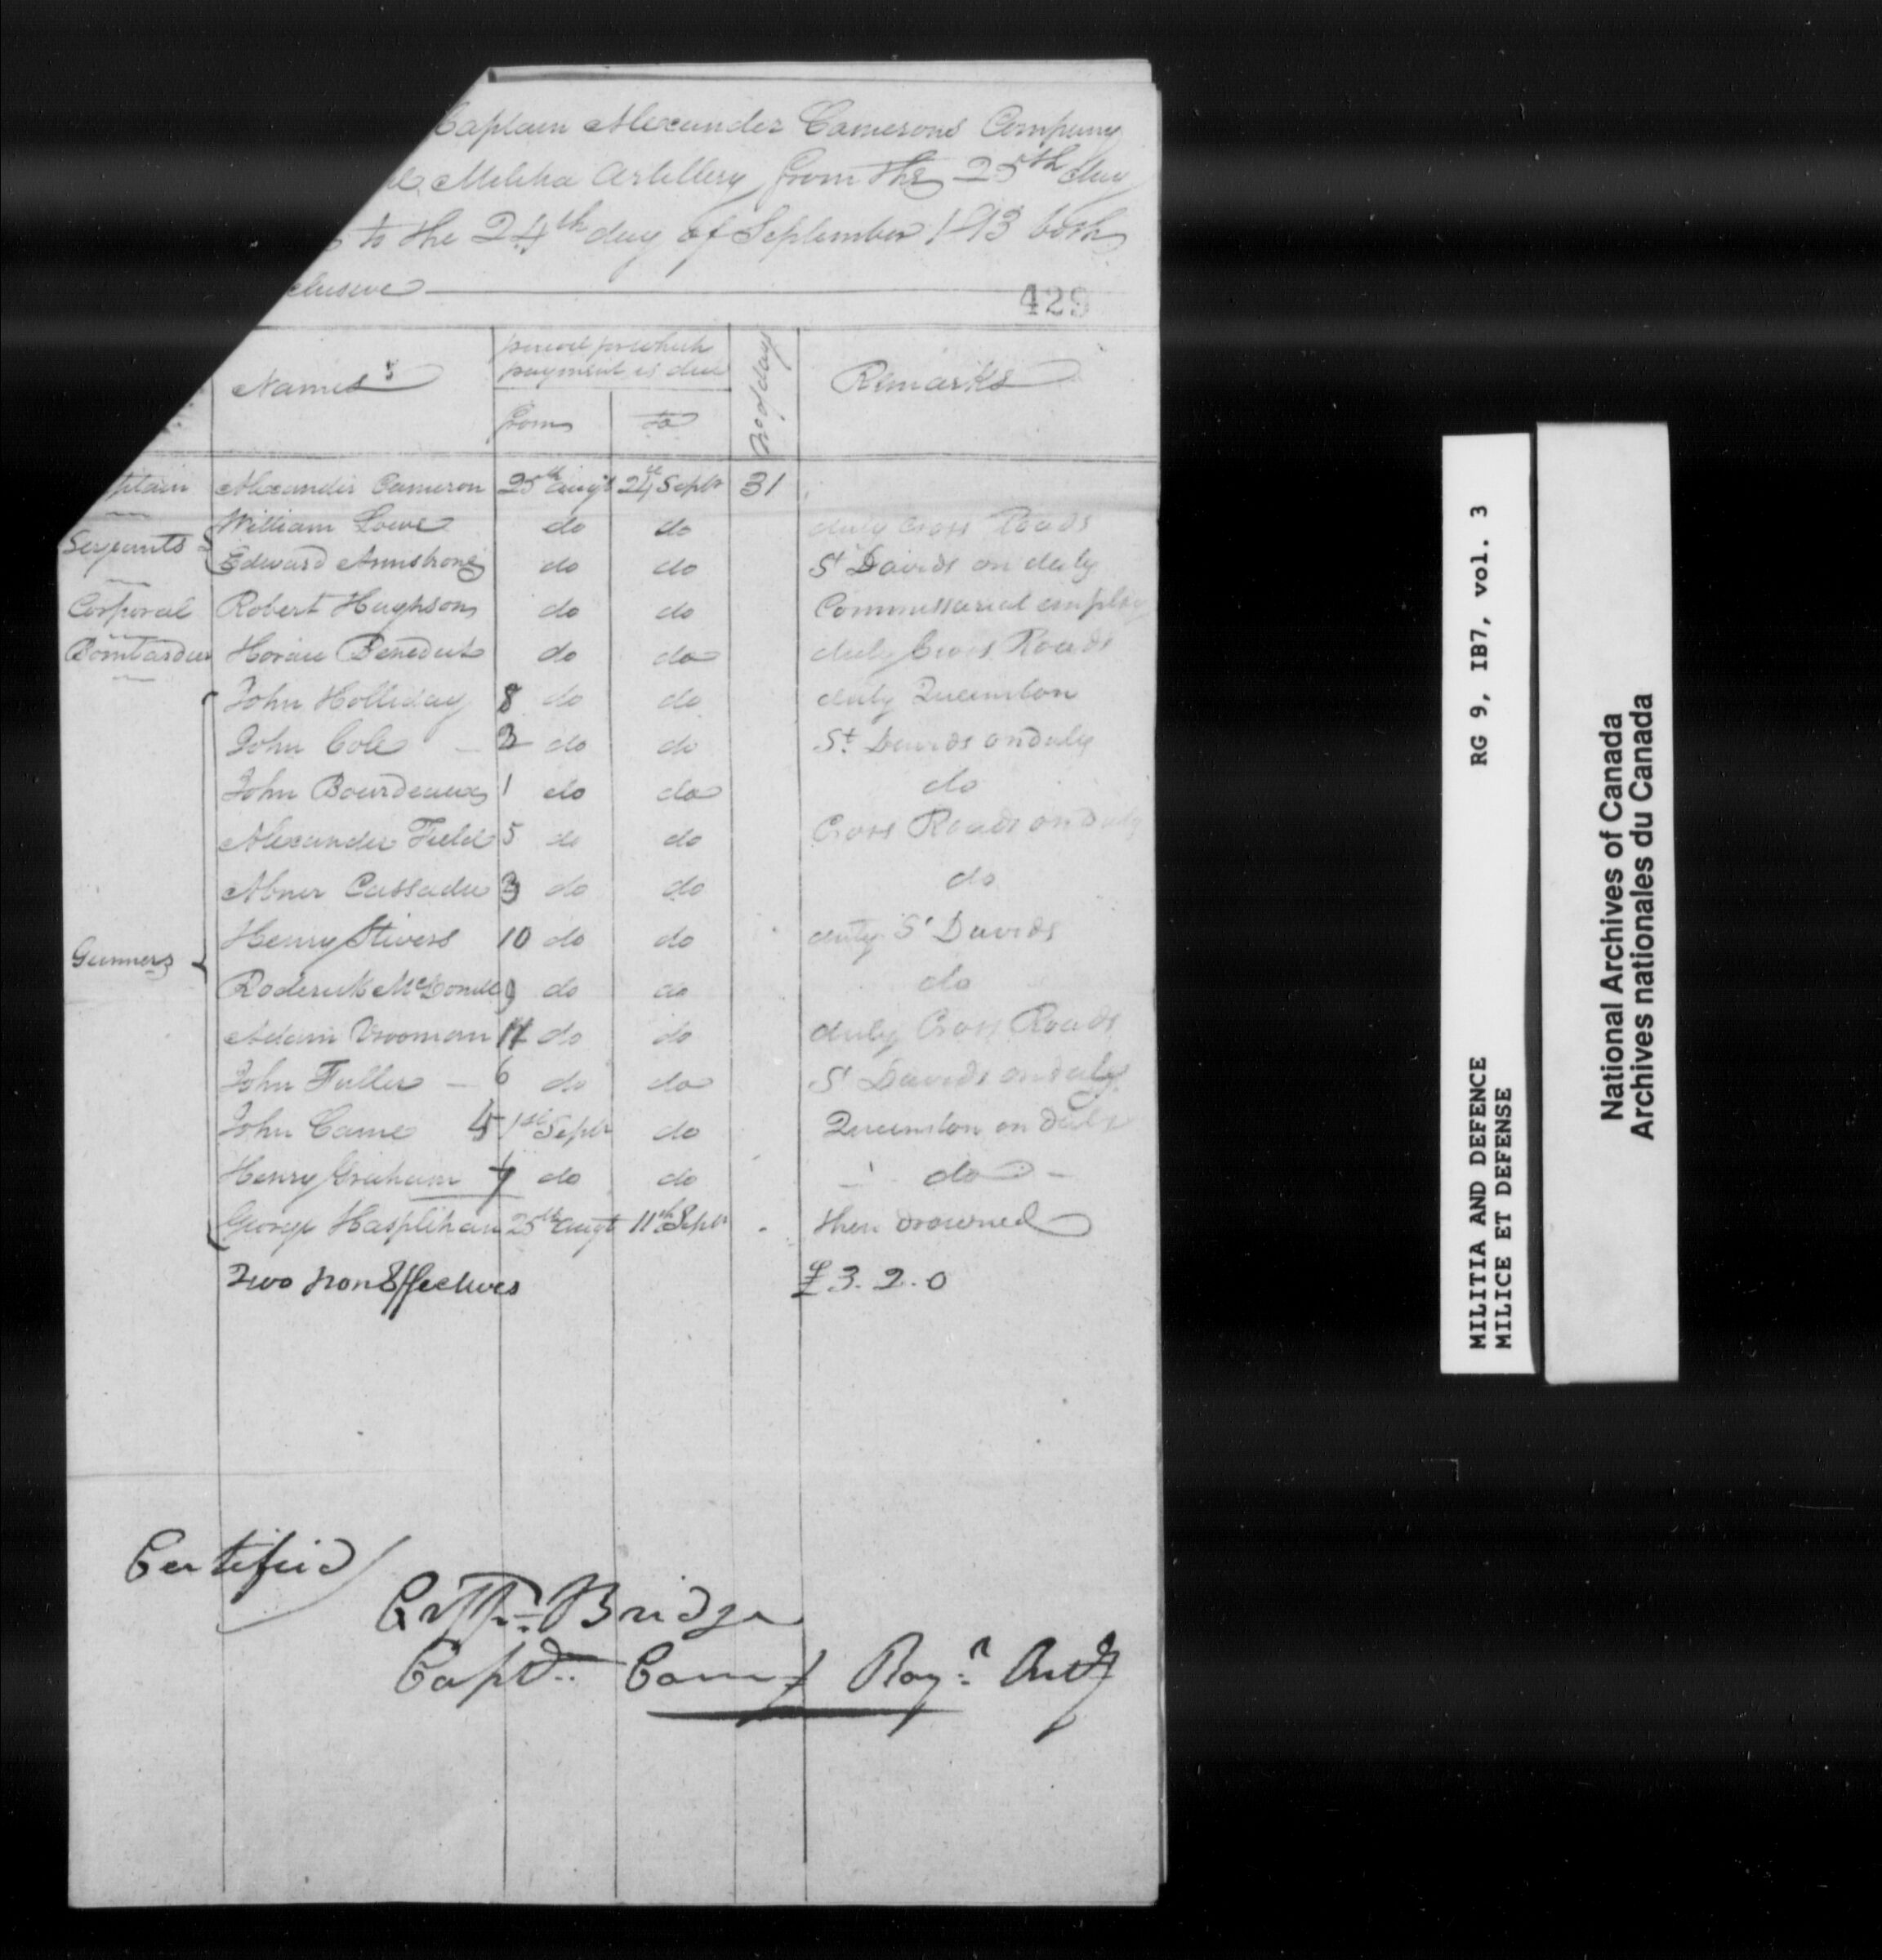 Captain Alexander Camerons Company
Militia Artillery from the 25th day
to the 24th day of September 1813 both
clusive
429
Names
period for which
payment is due
No of days
Remarks
from
to
ptain Alexander Cameron 25th augt 24th Septr 31
Serjeants William Lowe do do duty Cross Roads
Edward Armstrong do do St Davids on duty
Corporal Robert Hughson do do Commissariat employ
Bombardier Horace Benedict do do duty Cross Roads
John Holliday 8 do do duty Queenston
John Cole 2 do do St Davids on duty
John Bourdeaux 1 do do do
Alexander Field 5 do do Cross Roads on duty
Abner Cassadu 3 do do do
Gunners Henry Stivers 10 do do duty St Davids
Roderick McDonell 9 do do do
Adam Vrooman 11 do do duty Cross Roads
John Fuller - 6 do do St Davids on duty
John Came 4 1st Septr do Queenston on duty
Henry Graham 7 do do - do -
George Hasplihan 25th augt 11th Septr then drowned
Two non Effectives £3.2.0
Certified
Bridge
Capt. Com.g Roy.l Arty
RG 9, IB7, vol. 3
MILITIA AND DEFENCE
MILICE ET DEFENSE
National Archives of Canada
Archives nationales du Canada